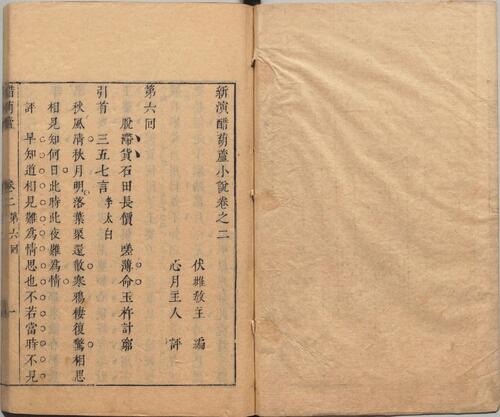 新演醋葫蘆小說卷之二
伏雌教主 編
心月主人 評
第六回
脫滯貨石田長價 嗟薄命玉杵計窮
引首 三五七言 李太白
秋風清秋月明落葉聚還散寒鴉棲復驚相思
相見知何日此時此夜難為情
評 早知道相見難為情思也不若當時不見
醋葫蘆 卷二第六回 一